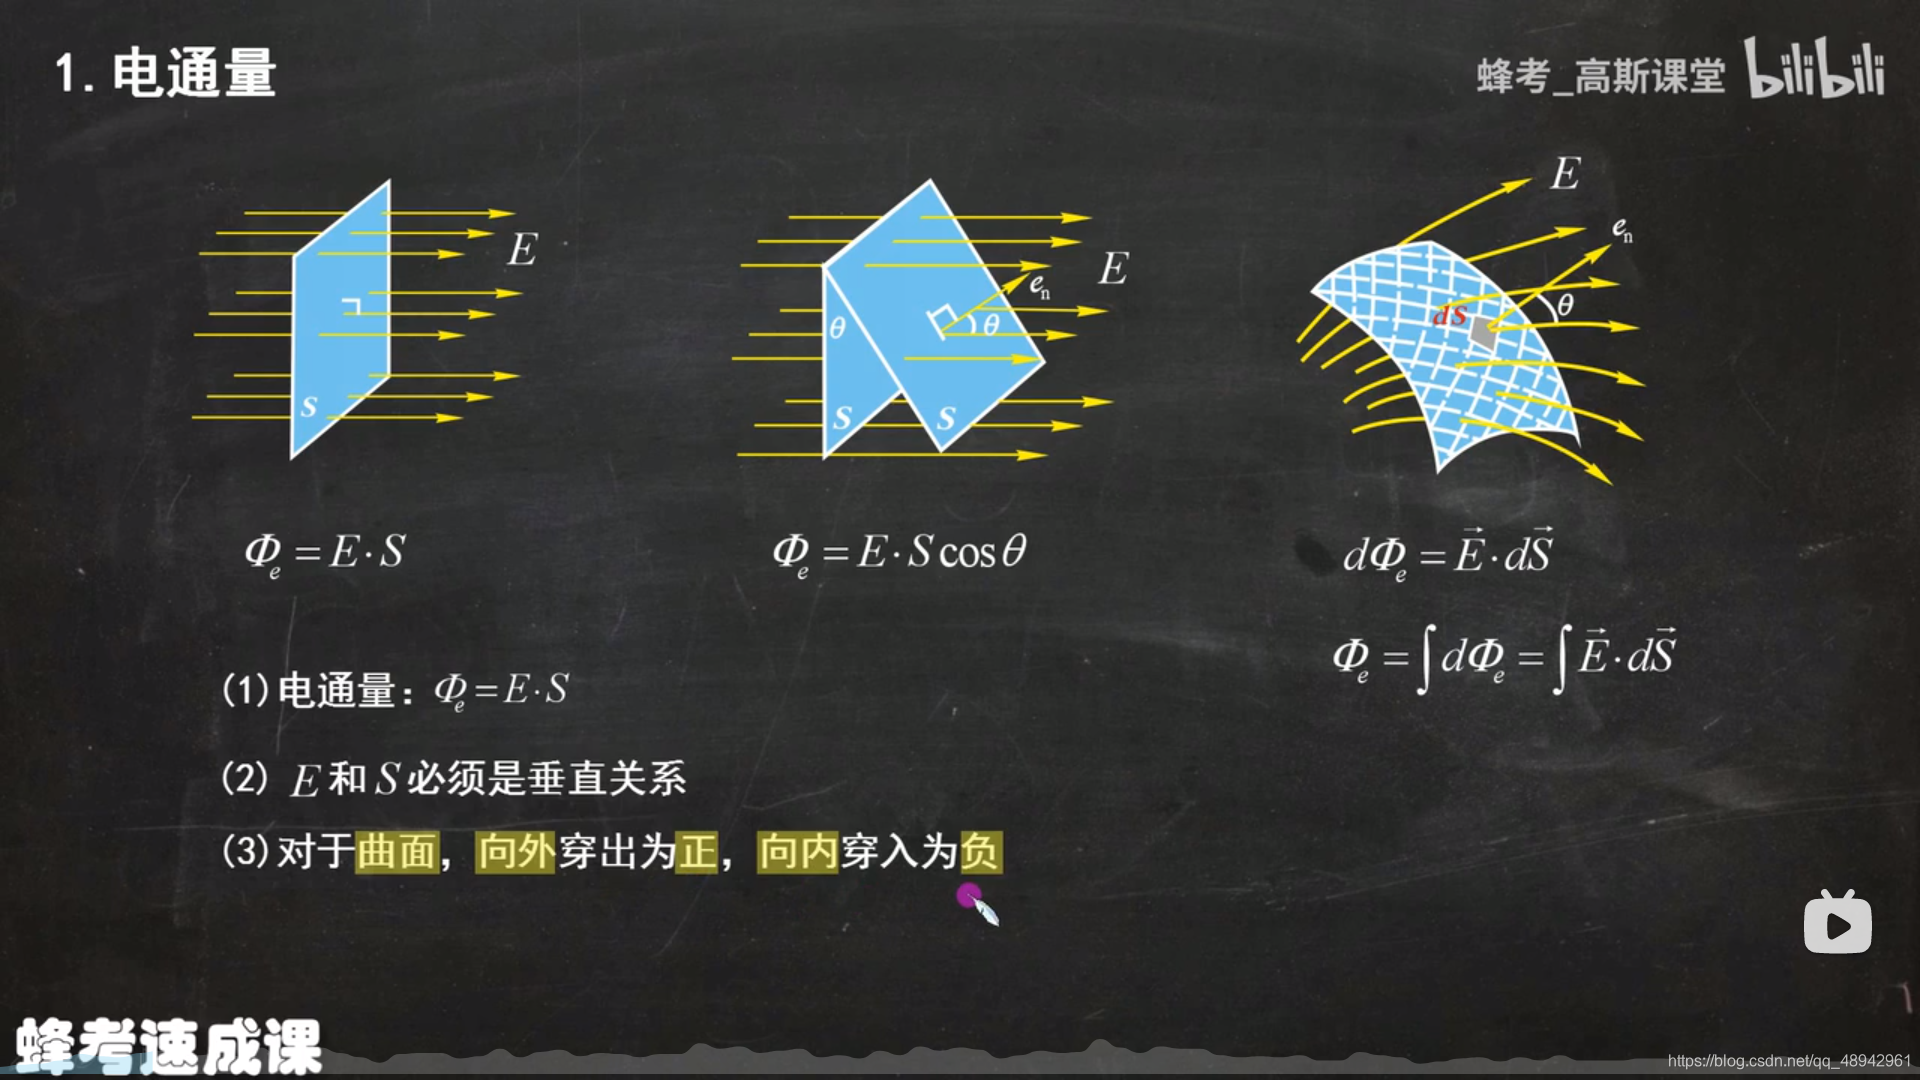 1.电通量
蜂考_高斯课堂 bilibili
E
S
E
e_n
θ
θ
S
S
E
e_n
θ
dS
Φ_e = E·S
Φ_e = E·S cosθ
dΦ_e = \vec{E}·d\vec{S}
Φ_e = ∫dΦ_e = ∫\vec{E}·d\vec{S}
(1)电通量：Φ_e=E·S
(2) E和S必须是垂直关系
(3)对于曲面，向外穿出为正，向内穿入为负
蜂考速成课
https://blog.csdn.net/qq_48942961